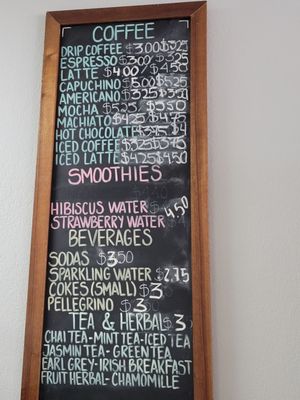 COFFEE
DRIP COFFEE $3.00 $3.25
ESPRESSO $3.00 $3.25
LATTE $4.00 $4.50
CAPUCHINO $5.00 $5.25
AMERICANO $3.25 $3.50
MOCHA $5.25 $5.50
MACHIATO $4.25 $4.75
HOT CHOCOLATE $3.75 $4
ICED COFFEE $3.25 $3.75
ICED LATTE $4.25 $4.50
SMOOTHIES
HIBISCUS WATER
STRAWBERRY WATER 4.50
BEVERAGES
SODAS $3.50
SPARKLING WATER $2.75
COKES (SMALL) $3
PELLEGRINO $3
TEA & HERBAL $3
CHAI TEA - MINT TEA - ICED TEA
JASMIN TEA - GREEN TEA
EARL GREY - IRISH BREAKFAST
FRUIT HERBAL - CHAMOMILLE